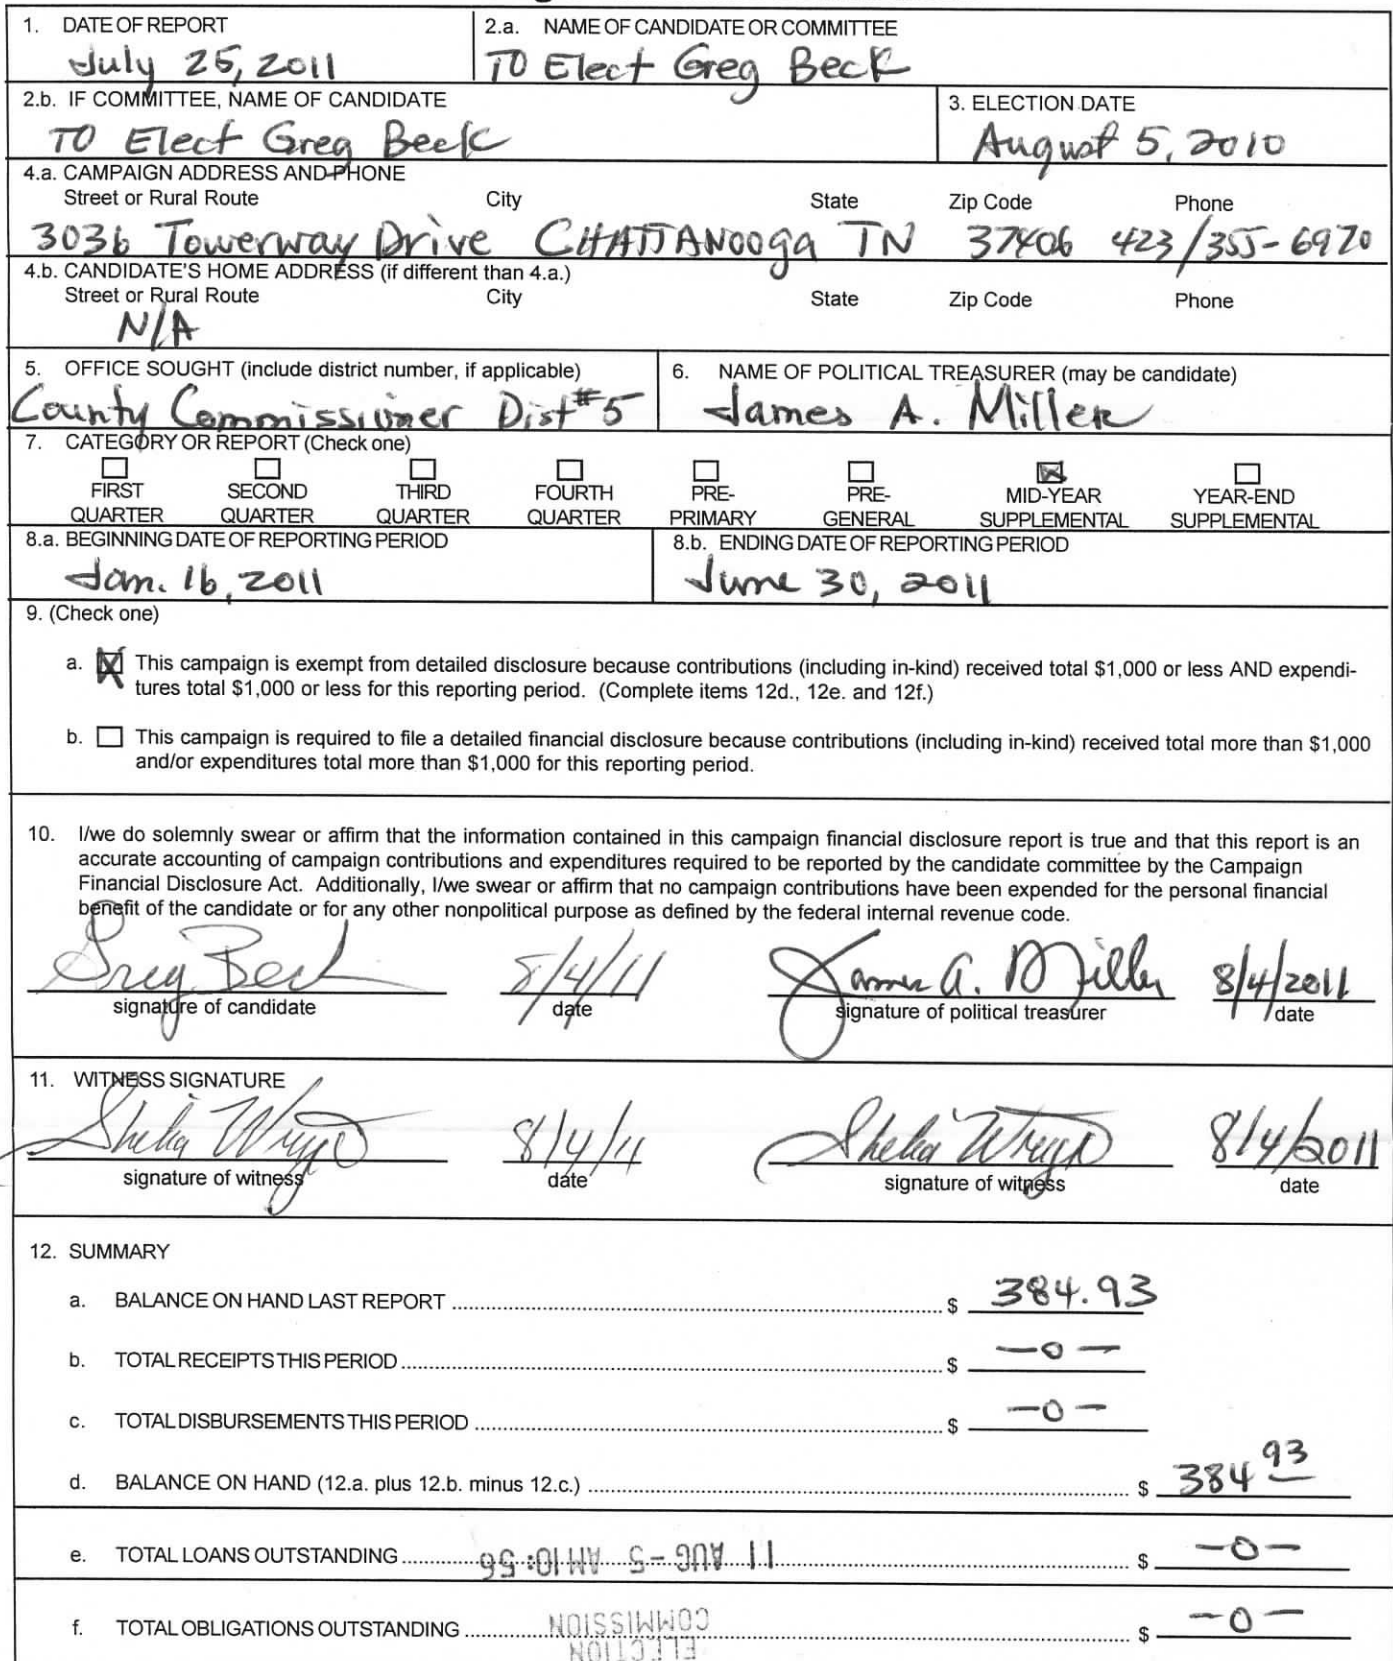 1. DATE OF REPORT
July 25, 2011
2.a. NAME OF CANDIDATE OR COMMITTEE
TO Elect Greg Beck
2.b. IF COMMITTEE, NAME OF CANDIDATE
TO Elect Greg Beck
3. ELECTION DATE
August 5, 2010
4.a. CAMPAIGN ADDRESS AND PHONE
Street or Rural Route City State Zip Code Phone
3036 Towerway Drive CHATTANooga TN 37406 423/355-6970
4.b. CANDIDATE'S HOME ADDRESS (if different than 4.a.)
Street or Rural Route City State Zip Code Phone
N/A
5. OFFICE SOUGHT (include district number, if applicable)
County Commissioner Dist #5
6. NAME OF POLITICAL TREASURER (may be candidate)
James A. Miller
7. CATEGORY OR REPORT (Check one)
FIRST QUARTER
SECOND QUARTER
THIRD QUARTER
FOURTH QUARTER
PRE-PRIMARY
PRE-GENERAL
MID-YEAR SUPPLEMENTAL
YEAR-END SUPPLEMENTAL
8.a. BEGINNING DATE OF REPORTING PERIOD
Jan. 16, 2011
8.b. ENDING DATE OF REPORTING PERIOD
June 30, 2011
9. (Check one)
a. This campaign is exempt from detailed disclosure because contributions (including in-kind) received total $1,000 or less AND expendi-
tures total $1,000 or less for this reporting period. (Complete items 12d., 12e. and 12f.)
b. This campaign is required to file a detailed financial disclosure because contributions (including in-kind) received total more than $1,000
and/or expenditures total more than $1,000 for this reporting period.
10. I/we do solemnly swear or affirm that the information contained in this campaign financial disclosure report is true and that this report is an
accurate accounting of campaign contributions and expenditures required to be reported by the candidate committee by the Campaign
Financial Disclosure Act. Additionally, I/we swear or affirm that no campaign contributions have been expended for the personal financial
benefit of the candidate or for any other nonpolitical purpose as defined by the federal internal revenue code.
Greg Beck 8/4/11 James A. Miller 8/4/2011
signature of candidate date signature of political treasurer date
11. WITNESS SIGNATURE
Shelia 8/4/11 Shelia 8/4/2011
signature of witness date signature of witness date
12. SUMMARY
a. BALANCE ON HAND LAST REPORT $ 384.93
b. TOTAL RECEIPTS THIS PERIOD $ -0-
c. TOTAL DISBURSEMENTS THIS PERIOD $ -0-
d. BALANCE ON HAND (12.a. plus 12.b. minus 12.c.) $ 384 93
e. TOTAL LOANS OUTSTANDING $ -0-
11 AUG -5 AM 10: 56
f. TOTAL OBLIGATIONS OUTSTANDING $ -0-
ELECTION
COMMISSION